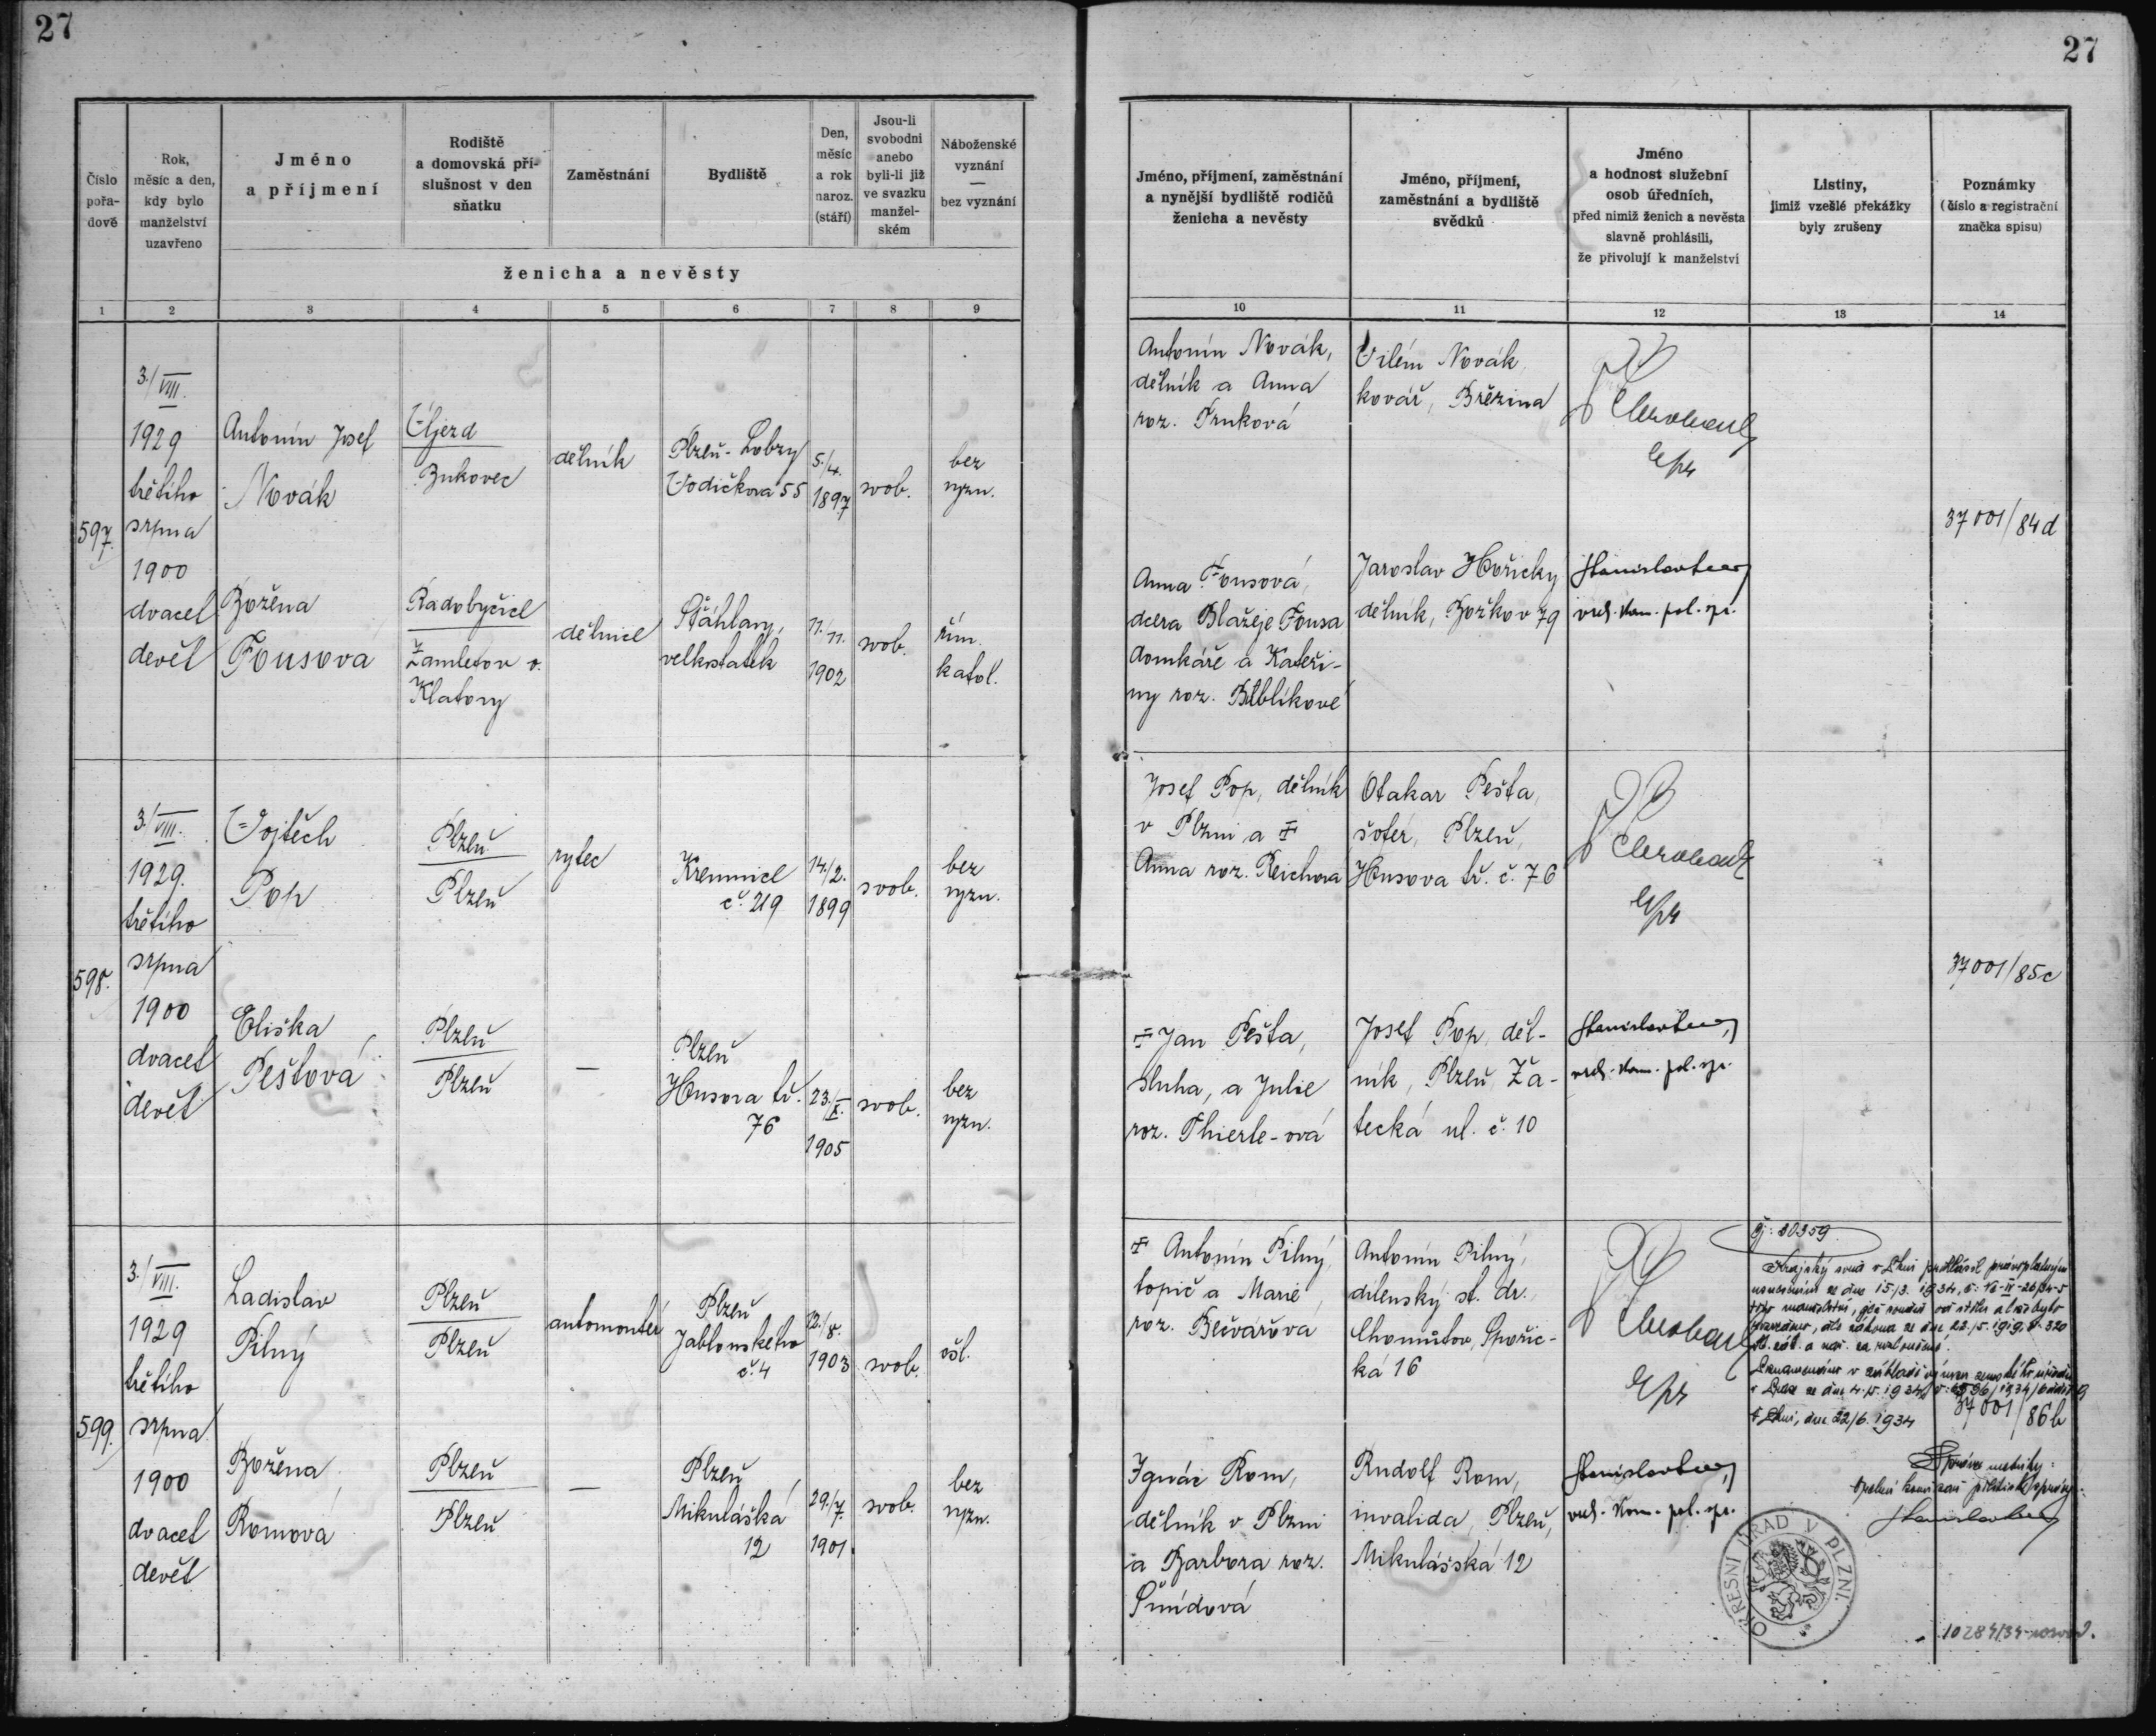 27
27
Číslo pořadové
Rok, měsíc a den, kdy bylo manželství uzavřeno
Jméno a příjmení
Rodiště a domovská příslušnost v den sňatku
Zaměstnání
Bydliště
Den, měsíc a rok naroz. (stáří)
Jsou-li svobodni anebo byli-li již ve svazku manželském
Náboženské vyznání — bez vyznání
ženicha a nevěsty
Jméno, příjmení, zaměstnání a nynější bydliště rodičů ženicha a nevěsty
Jméno, příjmení, zaměstnání a bydliště svědků
Jméno a hodnost služební osob úředních, před nimiž ženich a nevěsta slavně prohlásili, že přivolují k manželství
Listiny, jimiž vzešlé překážky byly zrušeny
Poznámky (číslo a registrační značka spisu)
1 2 3 4 5 6 7 8 9 10 11 12 13 14
597.
3./VIII.
1929
třetího
srpna
1900
dvacet
devět
Antonín Josef
Novák
Újezd
Bukovec
dělník
Plzeň-Lobzy
Vodičkova 55
5./4.
1897
svob.
bez
vyzn.
Antonín Novák,
dělník a Anna
roz. Trnková
Vilém Novák
kovář, Březina
37001/84d
Božena
Fousová
Radobyčice
Klatovy
dělnice
Šťáhlavy,
velkostatek
11./11.
1902
svob.
řím.
katol.
Anna Fousová,
dcera Blažeje Fousa
domkáře a Kateři-
ny roz. Bublíkové
Jaroslav Hořický
dělník, Božkov 79
vrch. kom. pol. spr.
598.
3./VIII.
1929.
třetího
srpna
1900
dvacet
devět
Vojtěch
Pop
Plzeň
Plzeň
rytec
Kremnice
č. 219
14./2.
1899
svob.
bez
vyzn.
Josef Pop, dělník
v Plzni a ‡
Anna roz. Reichová
Otakar Pešta,
šofér, Plzeň,
Husova tř. č. 76
37001/85c
Eliška
Peštová
Plzeň
Plzeň
—
Plzeň
Husova tř.
76
23./X.
1905
svob.
bez
vyzn.
‡ Jan Pešta,
sluha, a Julie
roz. Thierle-ová
Josef Pop, děl-
ník, Plzeň, Ža-
tecká ul. č. 10
vrch. kom. pol. spr.
599.
3./VIII.
1929
třetího
srpna
1900
dvacet
devět
Ladislav
Pilný
Plzeň
Plzeň
automontér
Plzeň
Jablonského
č. 4
1903
svob.
čsl.
‡ Antonín Pilný,
topič a Marie
roz. Bečvářová
Antonín Pilný,
dílenský st. dr.
Chomutov, Spořic-
ká 16
čj: 30359
Krajský soud v Plzni prohlásil
V Plzni, dne 22/6. 1934
37001/86b
Božena
Romová
Plzeň
Plzeň
—
Plzeň
Mikulášská
12
29./7.
1901
svob.
bez
vyzn.
Ignác Rom,
dělník v Plzni
a Barbora roz.
Šmídová
Rudolf Rom,
invalida, Plzeň,
Mikulášská 12
vrch. kom. pol. spr.
Správa matriky:
OKRESNÍ ÚŘAD V PLZNI.